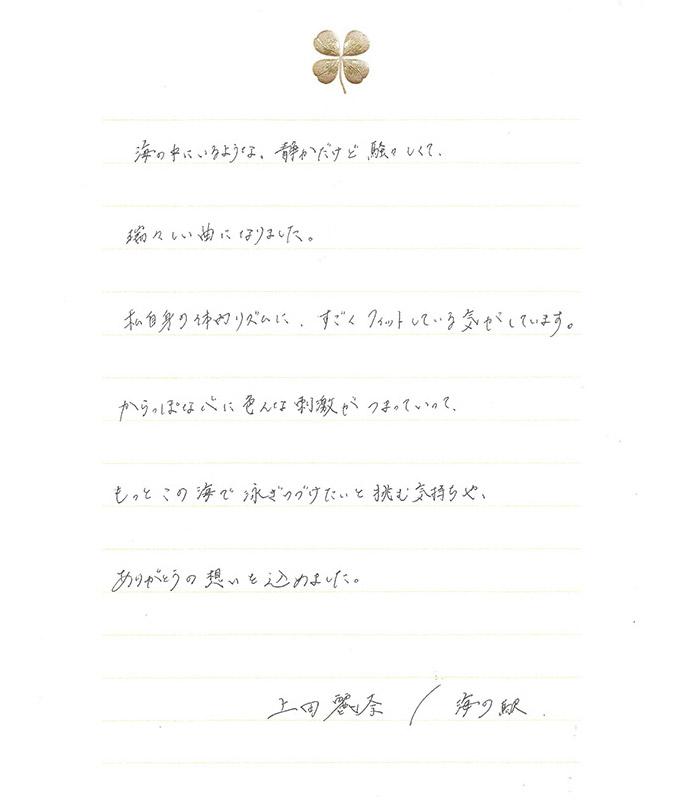 海の中にいるような、静かだけど騒々しくて、
瑞々しい曲になりました。
私自身の体内リズムに、すごくフィットしている気がしています。
からっぽな心に色んな刺激がつまっていって、
もっとこの海で泳ぎつづけたいと挑む気持ちや、
ありがとうの想いを込めました。
上田麗奈 / 海の駅